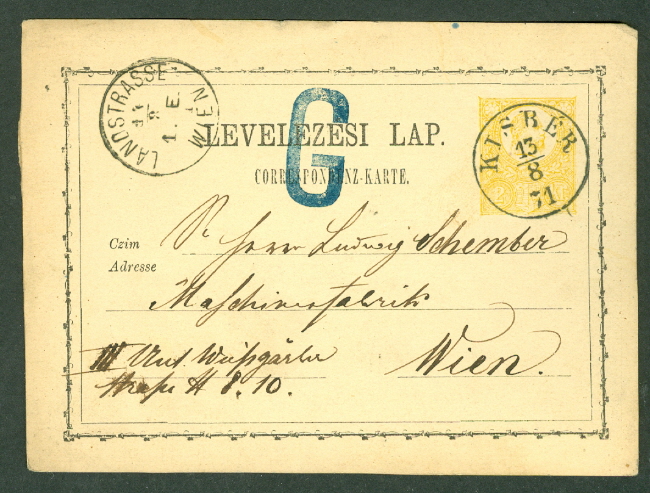 LANDSTRASSE WIEN
14
8
1. E.
G
LEVELEZESI LAP.
CORRESPONDENZ-KARTE.
KISBÉR
13/8
71
Czim
Adresse
Sr Herrn Ludwig Schember
Maschinenfabrik
III Unt. Weißgärber
straße # 8. 10.
Wien.